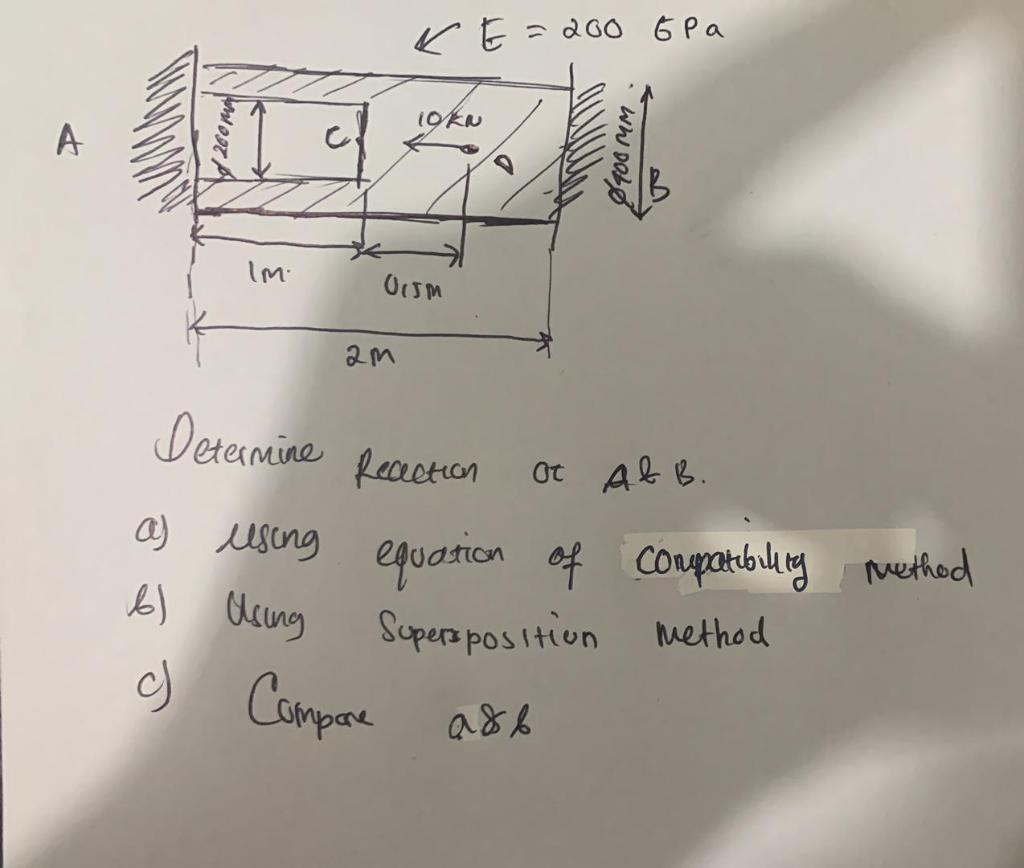 E = 200 GPa
A
ø 200mm
C
10 KN
D
ø400 MM
B
1M.
0.5M
2M
Determine Reaction at A & B.
a) using equation of compatibility method
b) Using Supersposition method
c) Compare a & b